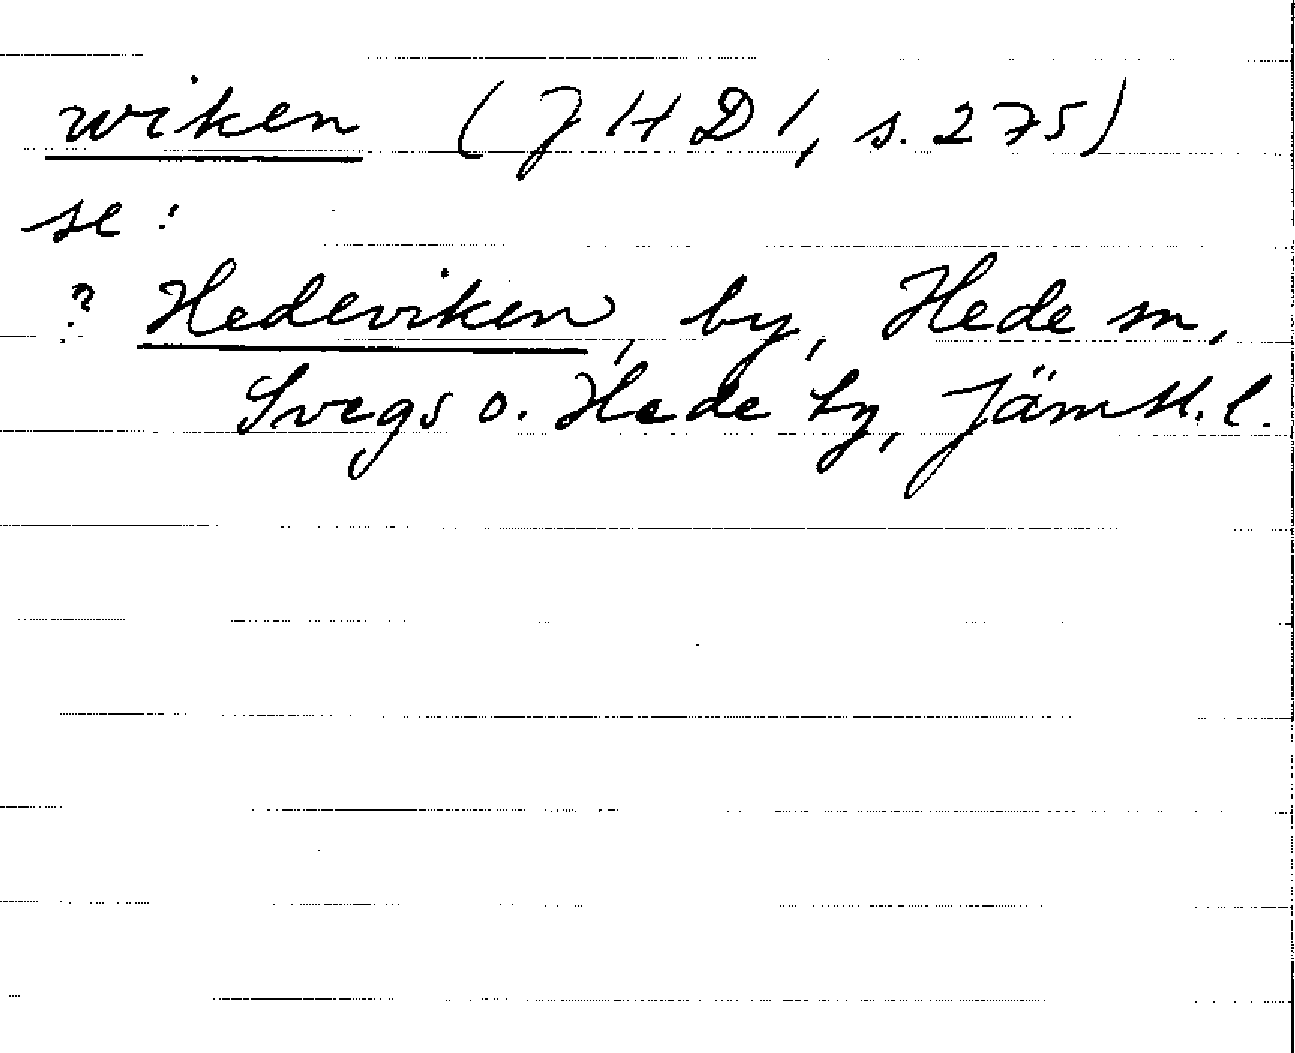 wiken (JHD 1, s. 275)
se:
? Hedeviken, by, Hede sn,
Svegs o. Hede tg, Jämtl. l.